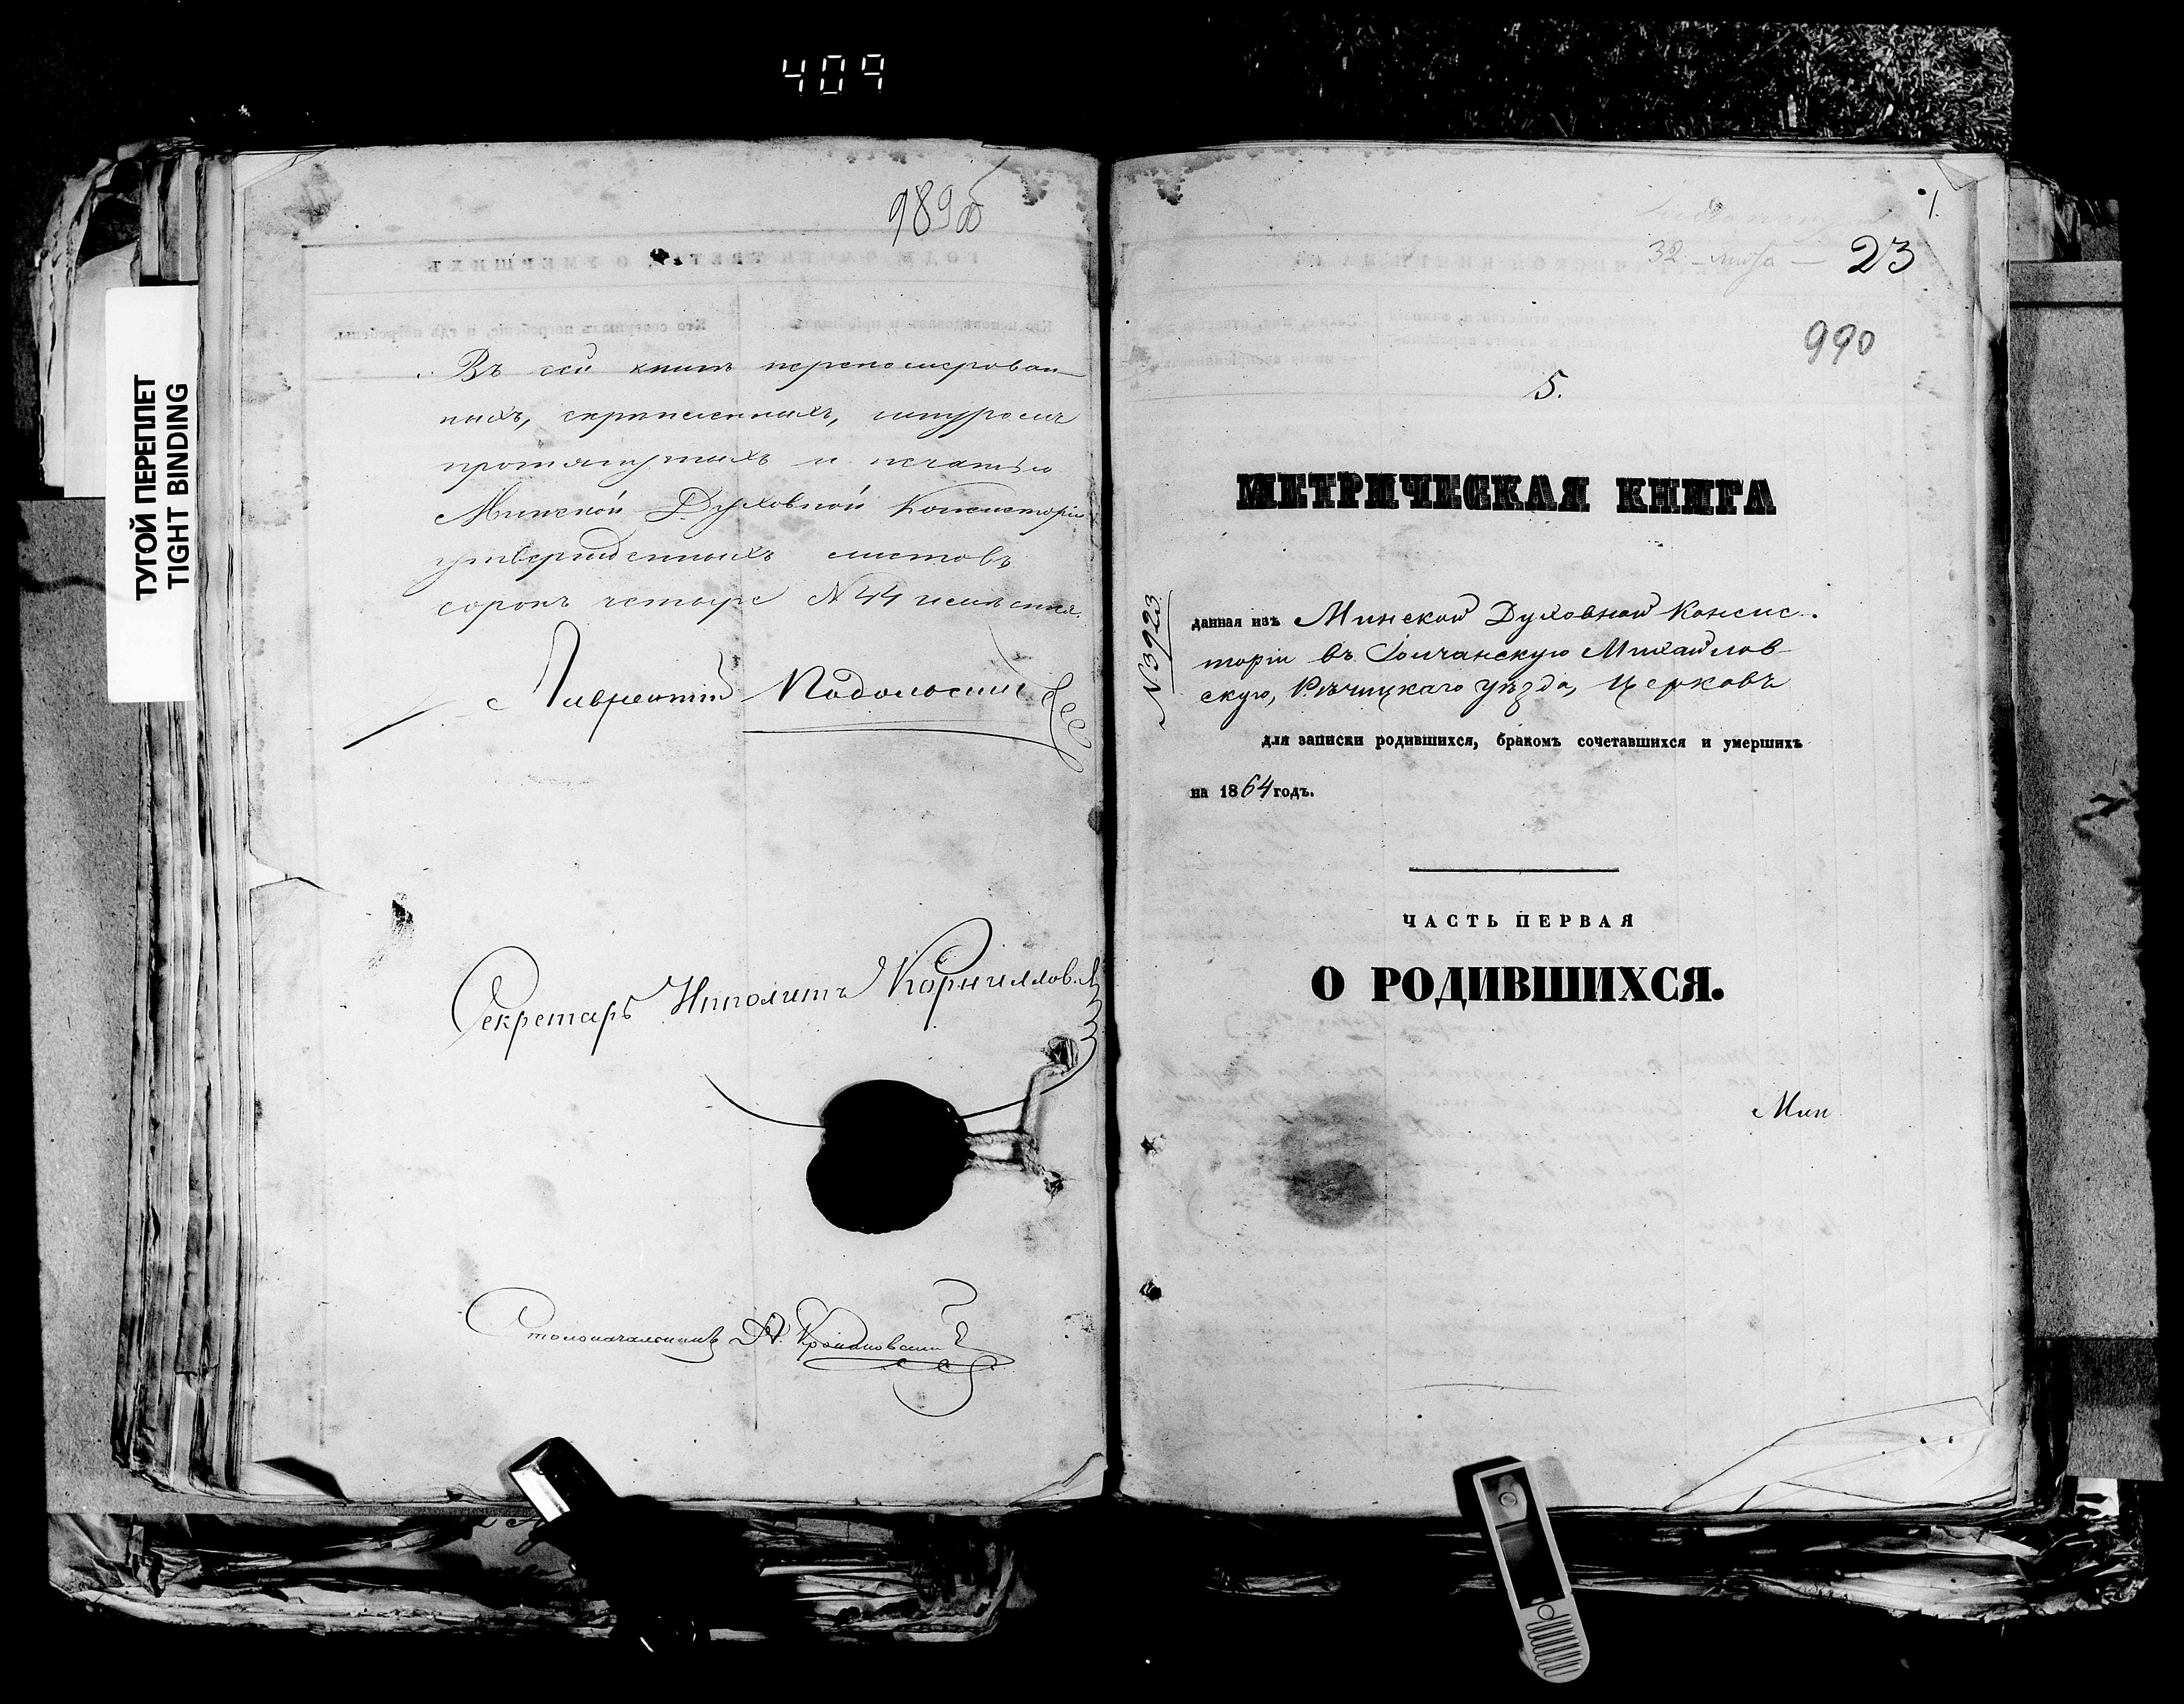 409
ТУГОЙ ПЕРЕПЛЕТ
TIGHT BINDING
989об
Въ сей книгѣ перенумерован-
ныхъ, скрѣпленныхъ, шнуромъ
протянутыхъ и печатью
Минской Духовной Консисторіи
утвержденныхъ листовъ
сорокъ четыре №44
Секретарь Ипполитъ
Столоначальникъ
1.
32 – листа – 23
990
5.
МЕТРИЧЕСКАЯ КНИГА
№3923
данная изъ Минской Духовной Консис-
торіи въ Михайлов-
скую, Рѣчицкаго уѣзда, Церковь
для записки родившихся, бракомъ сочетавшихся и умершихъ
на 1864 годъ.
ЧАСТЬ ПЕРВАЯ
О РОДИВШИХСЯ.
Мин